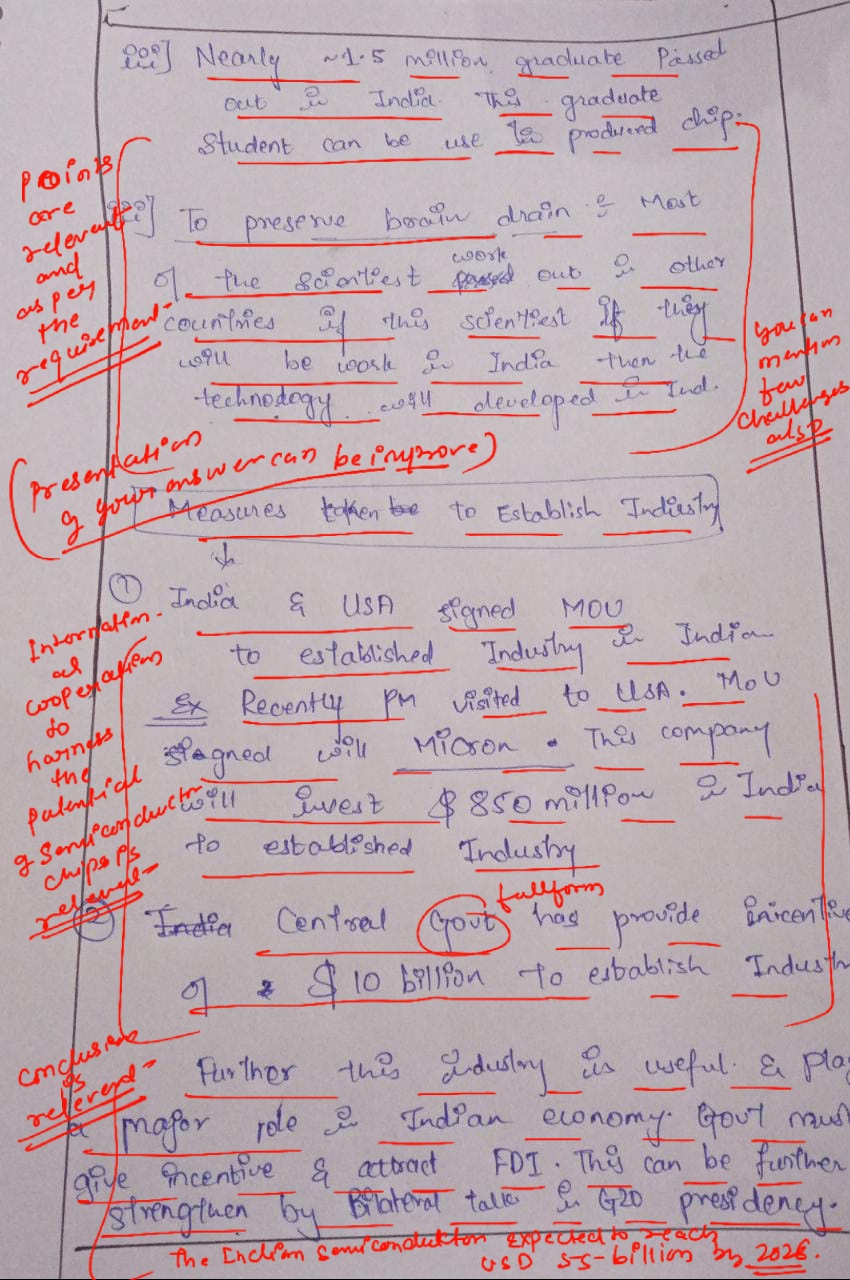 iii] Nearly ~1.5 million graduate Passed
out in India. This graduate
Student can be use to produced chip.
Points
are
relevent
and
as per
the
requirement-
iii] To preserve brain drain :- Most
of the scientiest work out in other
countries if this scientiest if they
will be work in India then the
technodogy will developed in Ind.
you can
mention
few
challenges
also
(Presentation
of your answer can be improve)
Measures taken to Establish Industry
↓
① India & USA signed MOU
to established Industry in Indian
Ex Recently PM visited to USA. MoU
signed will Micron. This company
will invest $850 million in India
to established Industry
Internation-
al
cooperation
to
harness
the
potential
of Semiconductor
chips is
relevent-
fullform
② India Central Govt has provide inicentive
of $ 10 billion to establish Industr
conclusion
is
relevent-
Further this industry is useful & play
a major role in Indian economy. Govt must
give incentive & attract FDI. This can be further
strengthen by Bilateral talk in G20 presidency.
The Indian semiconduttor expected to reach
USD 55-billion by 2026.